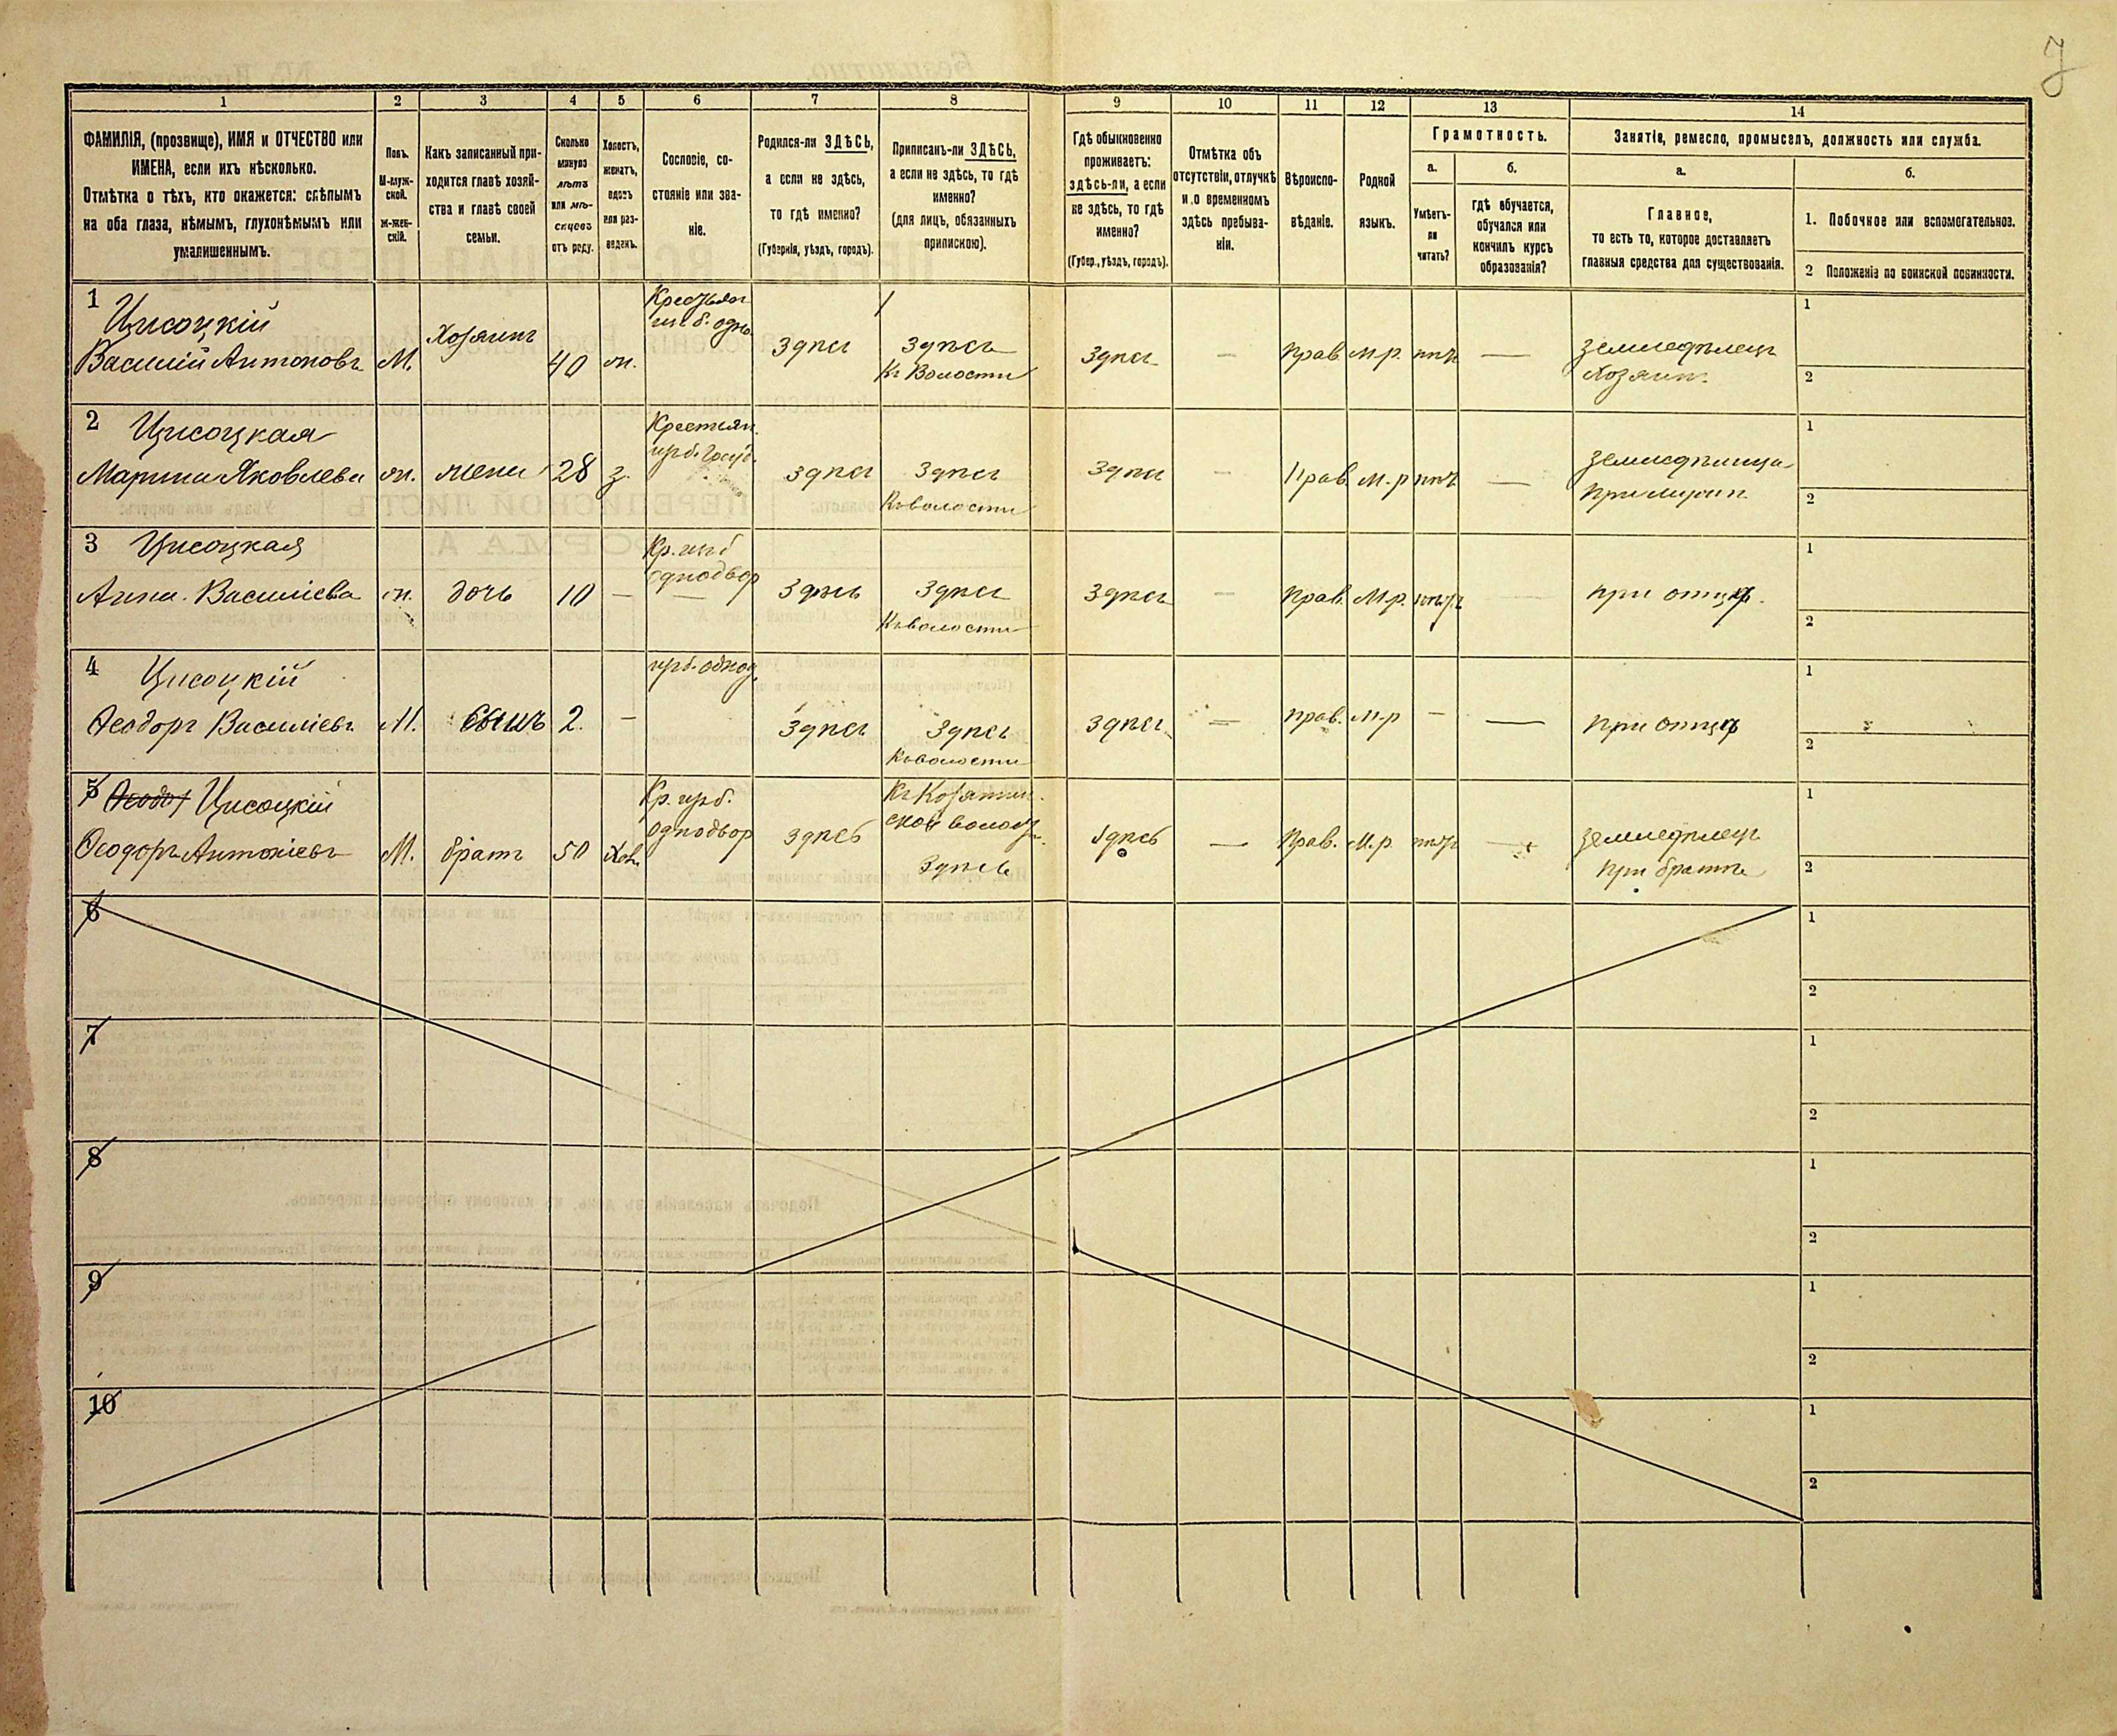 7
1
2
3
4
5
6
7
8
9
10
11
12
13
14
ФАМИЛІЯ, (прозвище), ИМЯ и ОТЧЕСТВО или
ИМЕНА, если ихъ нѣсколько.
Отмѣтка о тѣхъ, кто окажется: слѣпымъ
на оба глаза, нѣмымъ, глухонѣмымъ или
умалишеннымъ.
Полъ.
М-муж-
ской.
Ж-жен-
скій.
Какъ записанный при-
ходится главѣ хозяй-
ства и главѣ своей
семьи.
Сколько
минуло
лѣтъ
или мѣ-
сяцевъ
отъ роду.
Холостъ,
женатъ,
вдовъ
или раз-
веденъ.
Сословіе, со-
стояніе или зва-
ніе.
Родился-ли ЗДѢСЬ,
а если не здѣсь,
то гдѣ именно?
(Губернія, уѣздъ, городъ).
Приписанъ-ли ЗДѢСЬ,
а если не здѣсь, то гдѣ
именно?
(для лицъ, обязанныхъ
припискою).
Гдѣ обыкновенно
проживаетъ:
здѣсь-ли, а если
не здѣсь, то гдѣ
именно?
(Губер., уѣздъ, городъ).
Отмѣтка объ
отсутствіи, отлучкѣ
и о временномъ
здѣсь пребыва-
ніи.
Вѣроиспо-
вѣданіе.
Родной
языкъ.
Грамотность.
а.
Умѣетъ-
ли
читать?
б.
гдѣ обучается,
обучался или
кончилъ курсъ
образованія?
Занятіе, ремесло, промыселъ, должность или служба.
а.
Главное,
то есть то, которое доставляетъ
главныя средства для существованія.
б.
1. Побочное или вспомогательное.
2 Положеніе по воинской повинности.
1
Цисоцкій
Василій Антоновъ
М.
Хозяинъ
40
ж.
здѣсь
здѣсь
Къ Волости
здѣсь
—
прав.
м.р.
нѣтъ
—
земледѣлецъ
хозяин.
1
2
2
Цисоцкая
Марина Яковлева
ж.
жена
28
з.
Крестьян.
здѣсь
здѣсь
Къ волости
здѣсь
—
Прав.
м.р
нѣтъ
—
1
2
3
Цисоцкая
Анна Василіева
ж.
дочь
10
—
Кр.
однодвор
здѣсь
здѣсь
Къ волости
здѣсь
—
прав.
м.р.
нѣтъ
при отцѣ.
1
2
4
Цисоцкій
Ѳеодоръ Василіевъ
М.
сынъ
2.
—
здѣсь
здѣсь
Къ волости
здѣсь
—
прав.
м.р
—
—
при отцѣ
1
2
5
Ѳеодор Цисоцкій
Ѳеодоръ Антоніевъ
М.
братъ
50
Хол.
Кр.
однодвор
здѣсь
здѣсь
здѣсь
—
Прав.
м.р.
нѣтъ
—
земледѣлецъ
при братѣ
1
2
6
1
2
7
1
2
8
1
2
9
1
2
10
1
2